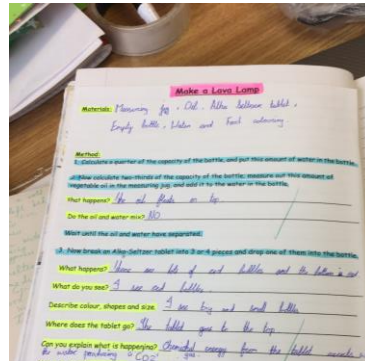 Make a Lava Lamp
Materials: Measuring jug, Oil, Alka Seltzer tablet,
Empty bottle, Water and Food colouring.
Method:
1. Calculate a quarter of the capacity of the bottle, and put this amount of water in the bottle.
2. Now calculate two-thirds of the capacity of the bottle; measure out this amount of
vegetable oil in the measuring jug, and add it to the water in the bottle.
that happens? the oil floats on top
Do the oil and water mix? NO
Wait until the oil and water have separated.
3. Now break an Alka-Seltzer tablet into 3 or 4 pieces and drop one of them into the bottle.
What happens? there are lots of bubbles and the bottom is
What do you see? I see red bubbles
Describe colour, shapes and size. I see big and small bubbles
Where does the tablet go? The tablet goes to the top
Can you explain what is happening? Chemical energy from the tablet
the water producing "CO2" gas